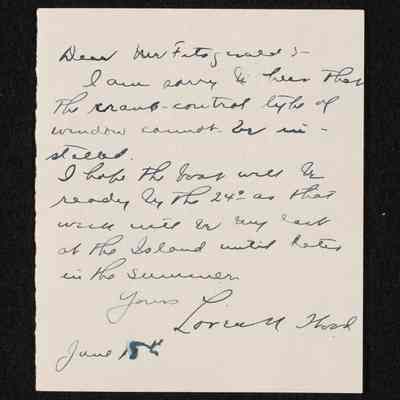 Dear Mr Fitzgerald:-
I am sorry to hear that
the crank-control type of
window cannot be in-
stalled.
I hope the boat will be
ready by the 24th as that
week will be my last
at the Island until later
in the summer.
Yours
June 15th